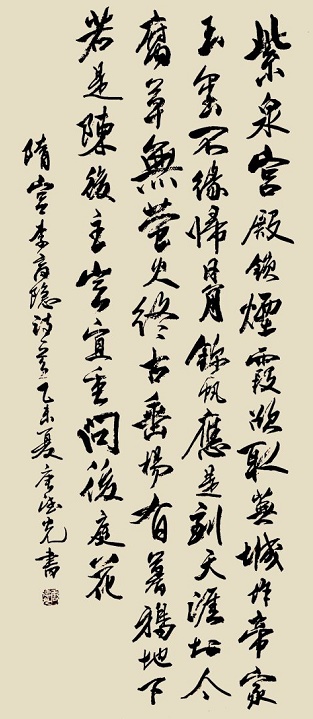 紫泉宮殿鎖煙霞欲取蕪城作帝家
玉璽不緣歸日角錦帆應是到天涯於今
腐草無螢火終古垂楊有暮鴉地下
若是陳後主豈宜重問後庭花
隋宮李商隐詩乙未夏書